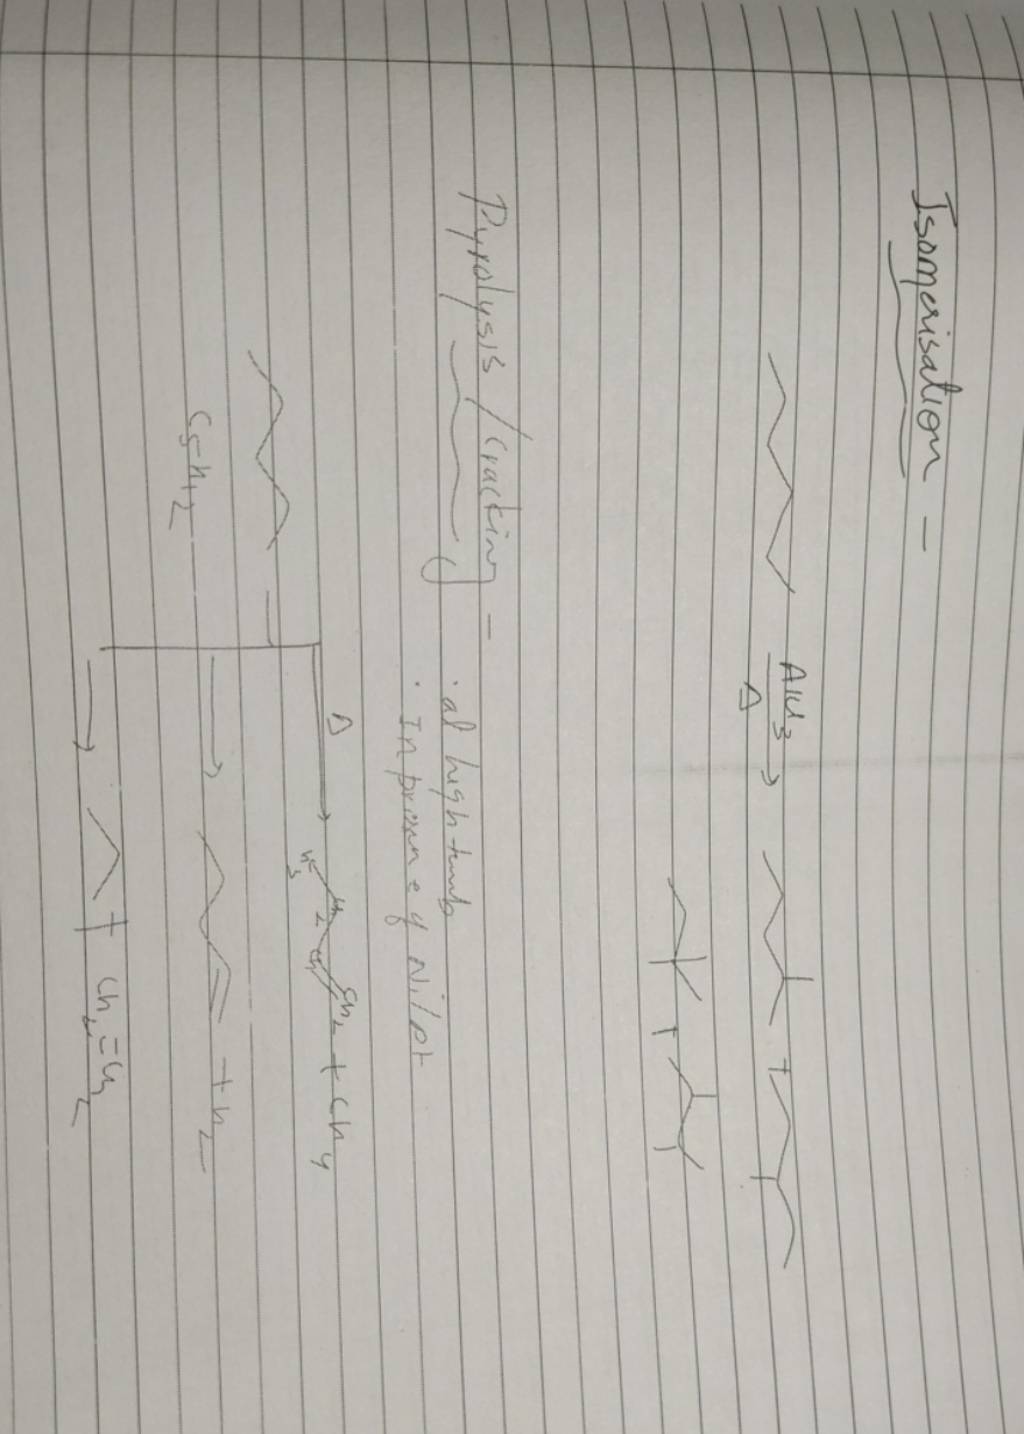 Isomerisation -
AlCl3
Δ
+
+
Pyrolysis / Cracking -
· at high temp
· In presence of Ni/Pt
Δ
H3C CH2 CH CH2 + CH4
C5H12
+ H2
+ CH2=CH2